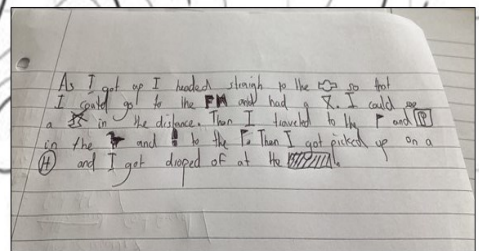 As I got up I headed straigh to the so that
I could go to the FM and had a . I could see
a in the distance. Then I traveled to the and P
in the and to the . Then I got picked up on a
H and I got droped of at the .